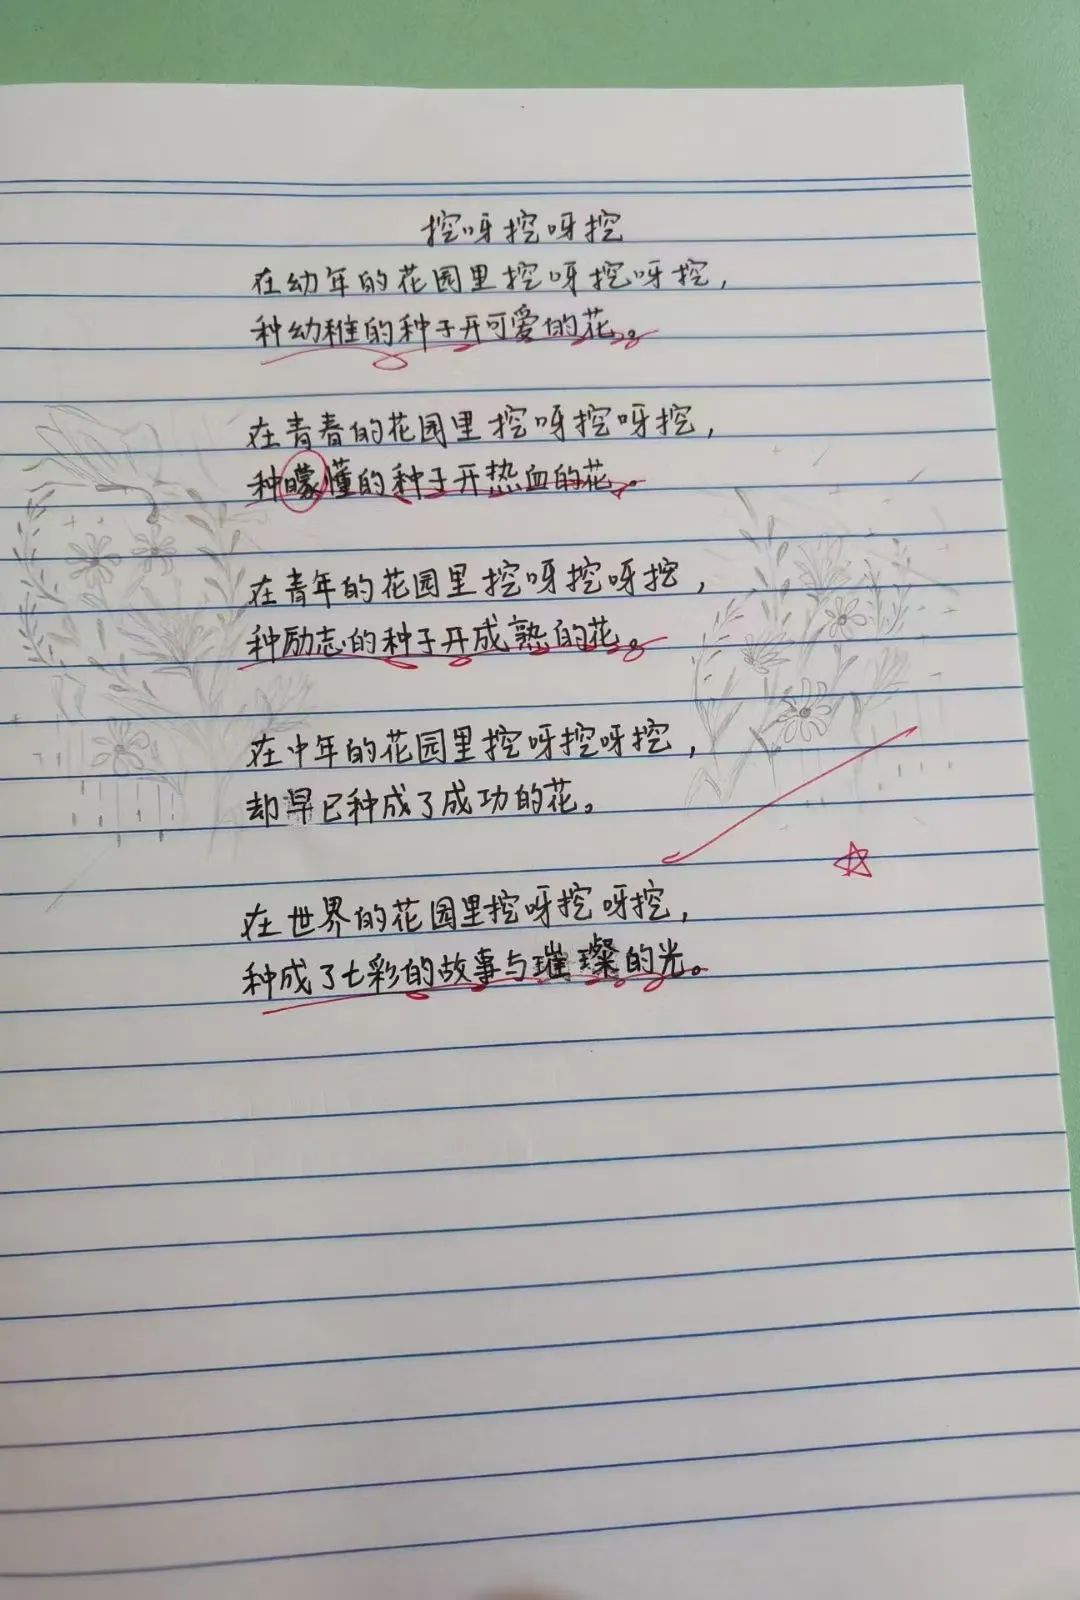 挖呀挖呀挖
在幼年的花园里挖呀挖呀挖，
种幼稚的种子开可爱的花。
在青春的花园里挖呀挖呀挖，
种曚懂的种子开热血的花。
在青年的花园里挖呀挖呀挖，
种励志的种子开成熟的花。
在中年的花园里挖呀挖呀挖，
却早已种成了成功的花。
在世界的花园里挖呀挖呀挖，
种成了七彩的故事与璀璨的光。